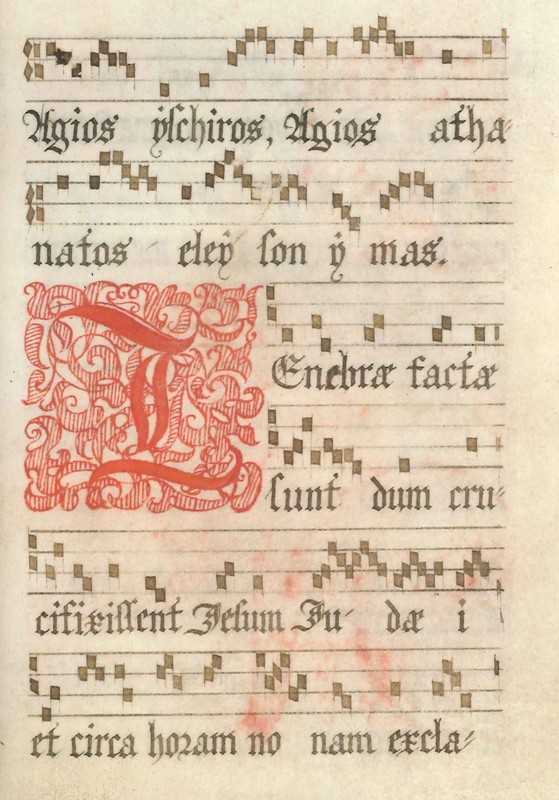 Agios ÿschiros, Agios atha-
natos eleÿ son ÿ mas.
TEnebræ factæ
sunt dum cru-
cifixissent Jesum Ju- dæ i
et circa horam no nam excla-